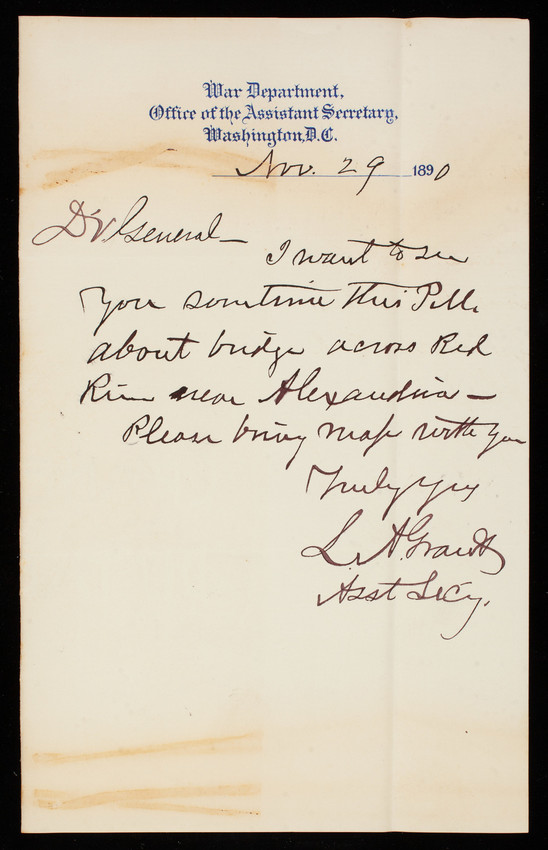 War Department,
Office of the Assistant Secretary,
Washington, D.C.
Nov. 29 1890
Dr. General—
I want to see
you sometime this P.M.
about bridge across Red
River near Alexandria—
Please bring map with you
Truly Yrs
L. A. Grant
Asst Secy.